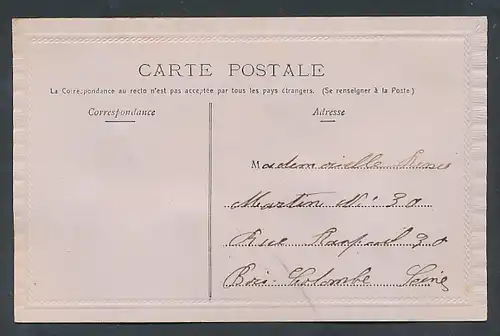 CARTE POSTALE
La Correspondance au recto n'est pas acceptée par tous les pays étrangers. (Se renseigner à la Poste)
Correspondance
Adresse
Mademoiselle Renée
Martin N° 30
Rue Raspail 30
Bois-Colombe Seine